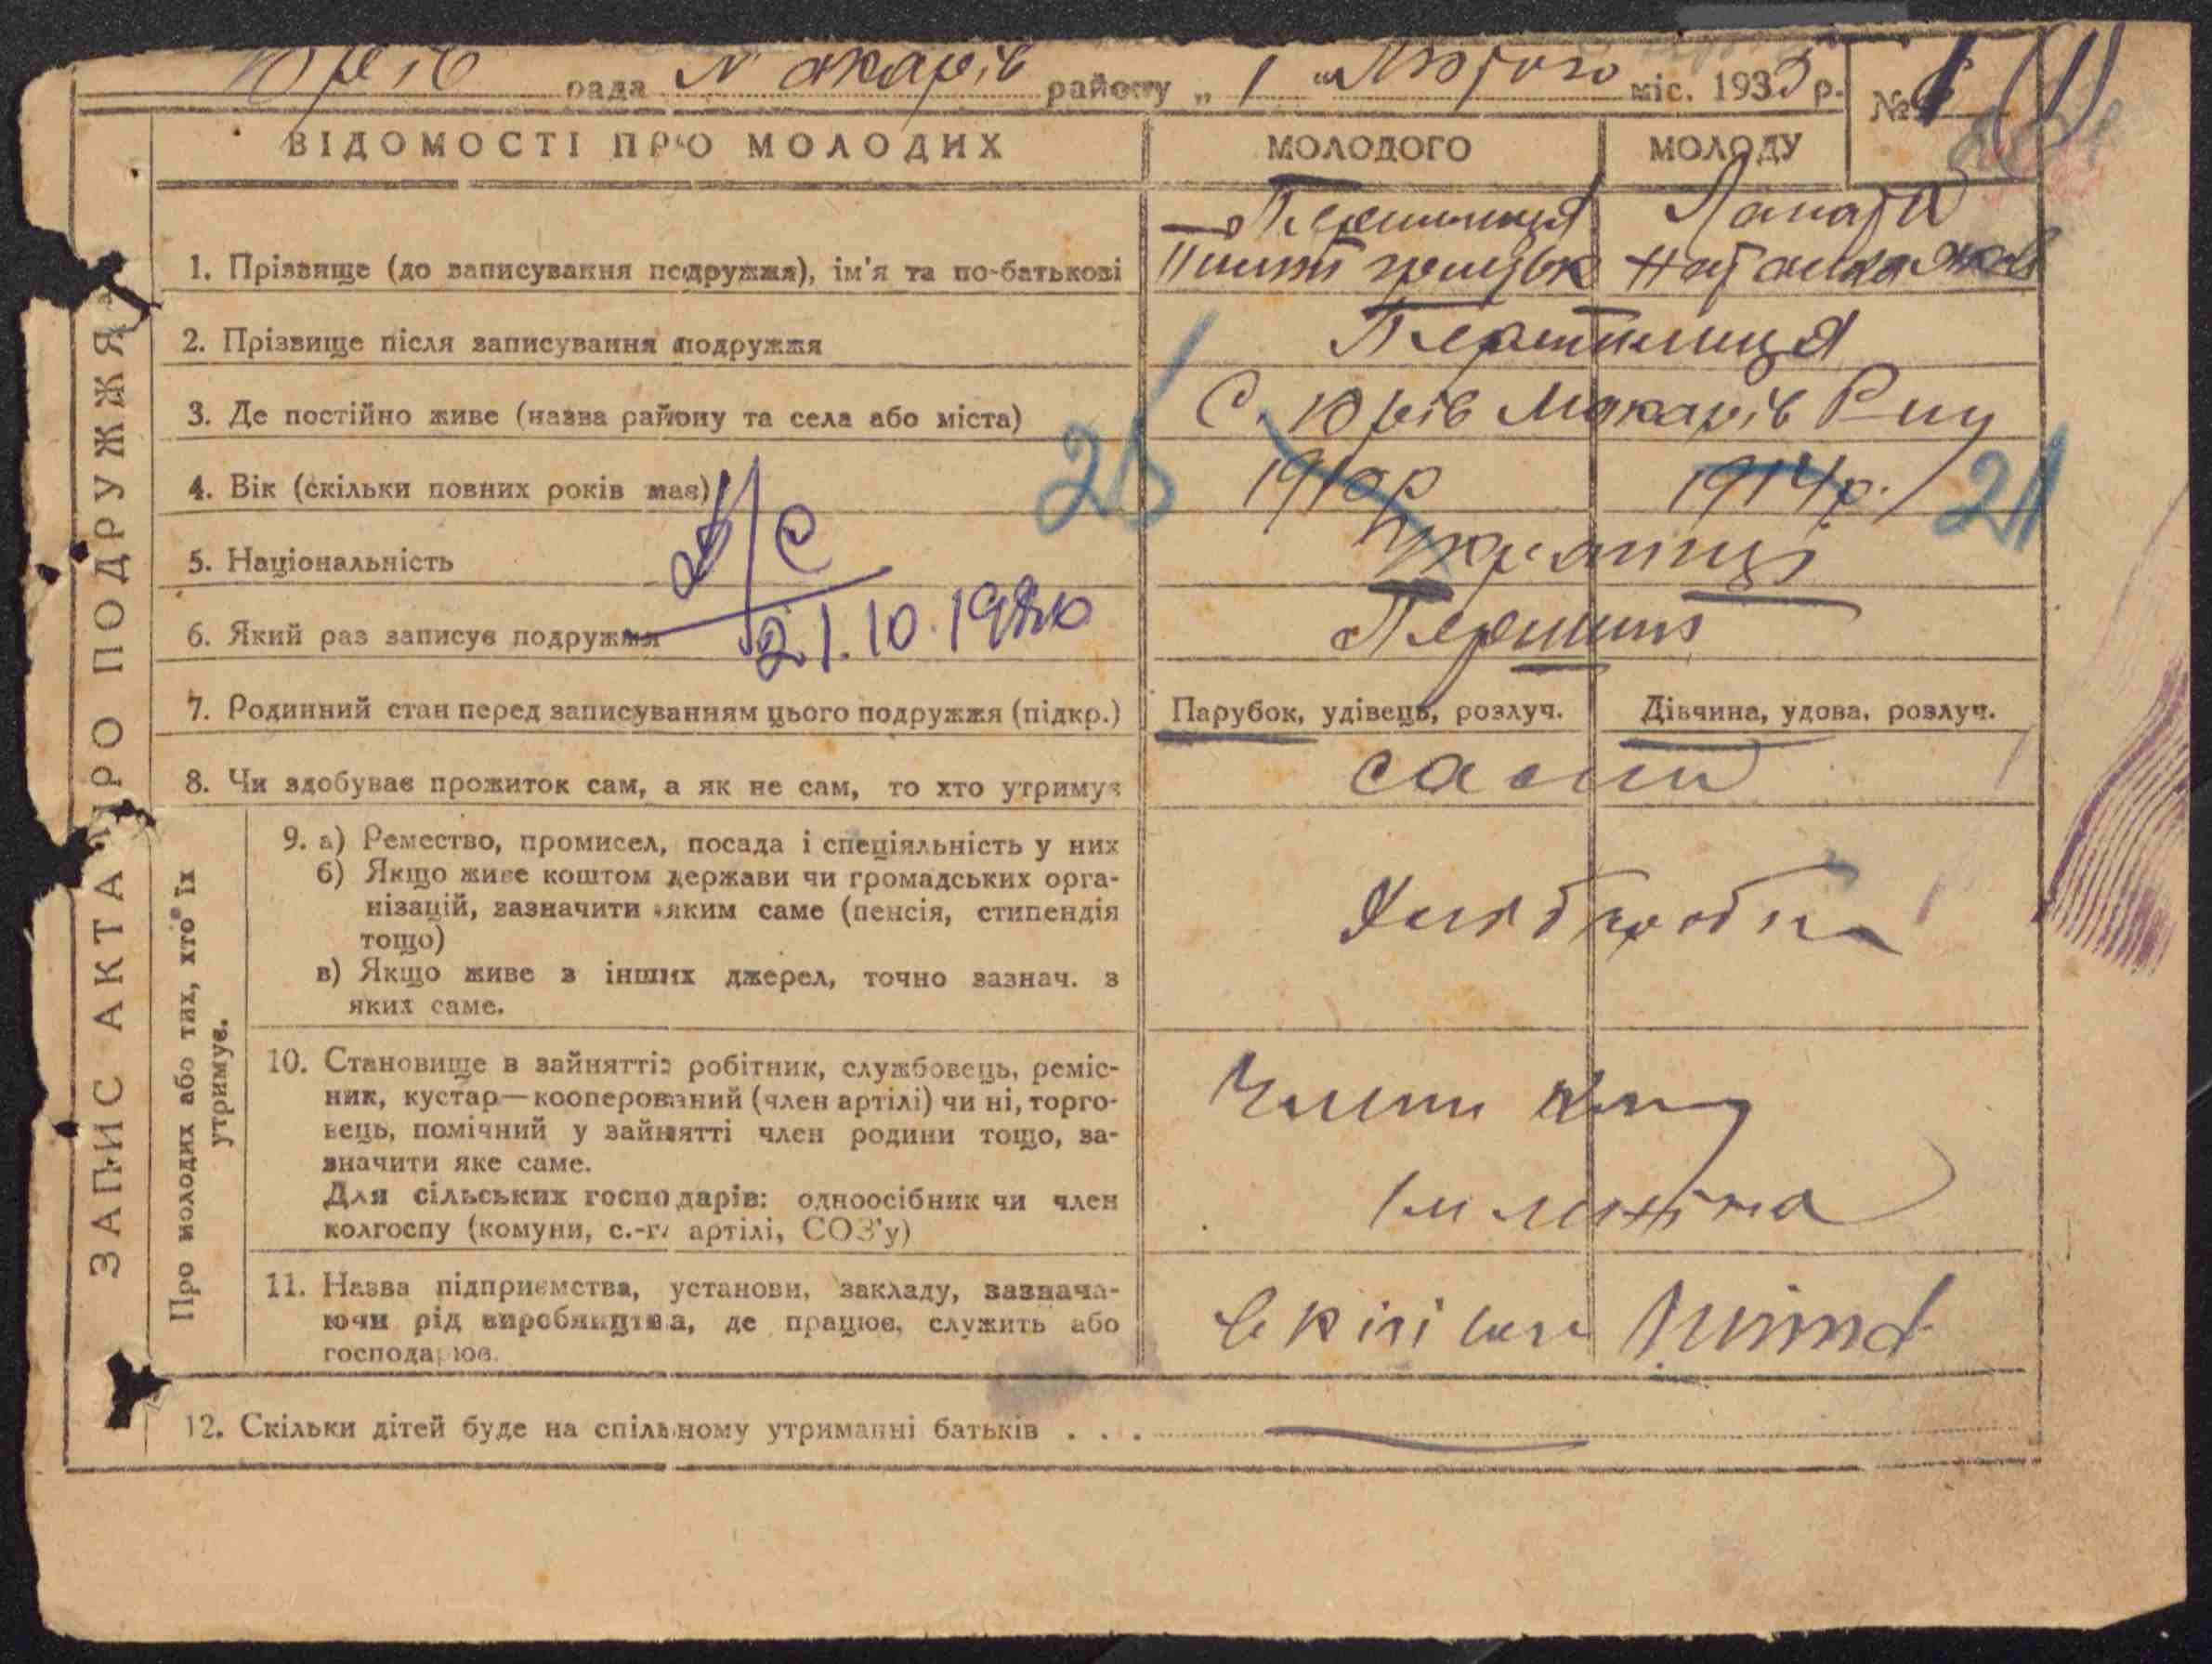 Юрів рада Макарів району „ 1 “ Лютого міс. 1935 р.
№ 1 (1)
ВІДОМОСТІ ПРО МОЛОДИХ
МОЛОДОГО
МОЛОДУ
1. Прізвище (до записування подружжя), ім'я та по-батькові
2. Прізвище після записування подружжя
3. Де постійно живе (назва району та села або міста)
С. Юрів Макарів Р-ну
4. Вік (скільки повних років має)
25
1910р
1914р.
21
5. Національність
Українці
6. Який раз записує подружжя
Перший
21.10.1980
7. Родинний стан перед записуванням цього подружжя (підкр.)
Парубок, удівець, розлуч.
Дівчина, удова, розлуч.
8. Чи здобуває прожиток сам, а як не сам, то хто утримує
сами
9. а) Ремество, промисел, посада і спеціяльність у них
б) Якщо живе коштом держави чи громадських орга-
нізацій, зазначити яким саме (пенсія, стипендія
тощо)
в) Якщо живе з інших джерел, точно зазнач. з
яких саме.
Хліборобка
10. Становище в зайнятті: робітник, службовець, реміс-
ник, кустар—кооперований (член артілі) чи ні, торго-
вець, помічний у зайнятті член родини тощо, за-
значити яке саме.
Для сільських господарів: одноосібник чи член
колгоспу (комуни, с.-г. артілі, СОЗ'у)
11. Назва підприємства, установи, закладу, зазнача-
ючи рід виробництва, де працює, служить або
господарює.
12. Скільки дітей буде на спільному утриманні батьків . . .
ЗАПИС АКТА ПРО ПОДРУЖЖЯ
Про молодих або тих, хто їх
утримує.